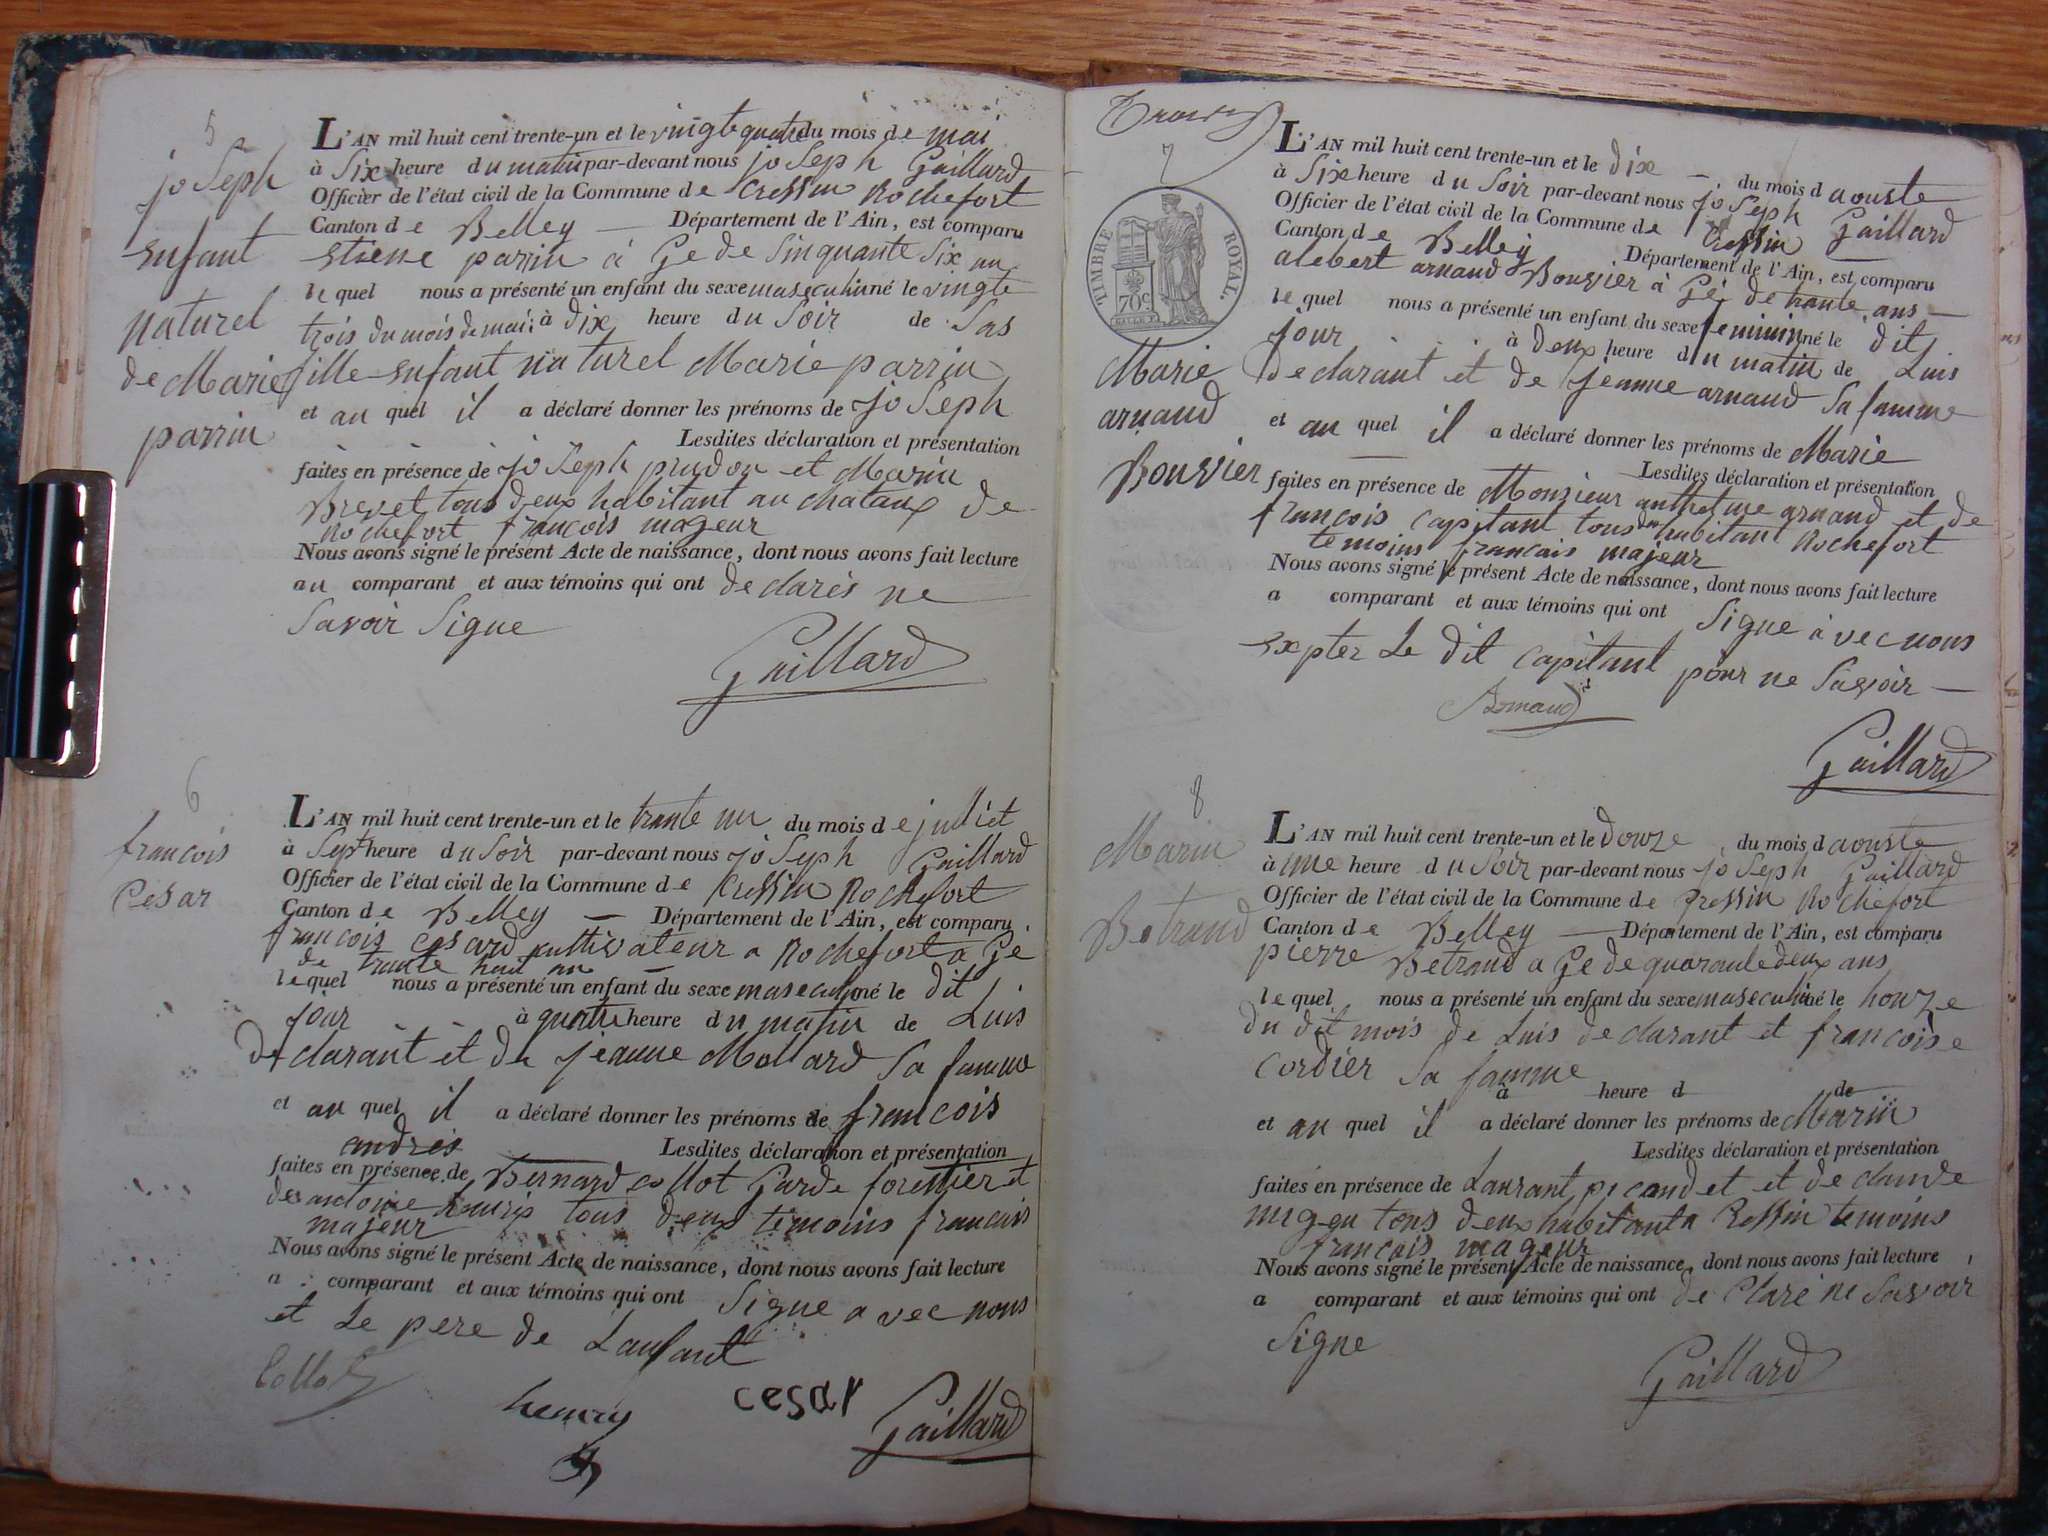 5
joseph
enfant
naturel
de Marie
parrin
L'AN mil huit cent trente-un et le vingtequatre du mois de mai
à Six heure du matin par-devant nous joseph Gaillard
Officier de l'état civil de la Commune de Cressin Rochefort
Canton de Belley — Département de l'Ain, est comparu
etiene parrin à Gede Sinquante Six an
le quel nous a présenté un enfant du sexe masculin né le vingte
trois du mois de mai à dix heure du Soir de Sas
fille enfant naturel Marie parrin
et au quel il a déclaré donner les prénoms de joseph
Lesdites déclaration et présentation
faites en présence de joseph prudon et Marin
Brevet tous deux habitant au chataux de
Rochefort francois mageur
Nous avons signé le présent Acte de naissance, dont nous avons fait lecture
au comparant et aux témoins qui ont declarés ne
Savoir Signe
Gaillard
6
francois
Cesar
L'AN mil huit cent trente-un et le trante un du mois de julliet
à Sept heure du Soir par-devant nous joseph Gaillard
Officier de l'état civil de la Commune de Cressin Rochefort
Canton de Belley — Département de l'Ain, est comparu
francois cesard cultivateur a Rochefort a Gé
de trante huit an
lequel nous a présenté un enfant du sexe masculin né le dit
jour à quatre heure du matin de Luis
declarant et de jeanne Mollard Sa famme
et au quel il a déclaré donner les prénoms de francois
andrés
Lesdites déclaration et présentation
faites en présence de Bernard collot Garde forestier et
de antoine henrix tous deux témoins francois
majeur
Nous avons signé le présent Acte de naissance, dont nous avons fait lecture
a comparant et aux témoins qui ont Signe avec nous
et Le pere de Lanfant
Collot
henry
cesar
Gaillard
7
TIMBRE ROYAL.
70c
Marie
arnaud
Bouvier
L'AN mil huit cent trente-un et le dix — du mois d aouste
à Six heure du Soir par-devant nous joseph Gaillard
Officier de l'état civil de la Commune de Cressin
Canton de Belley Département de l'Ain, est comparu
alebert arnaud Bouvier à Gé de trante ans —
le quel nous a présenté un enfant du sexe feminin né le dit
jour à deux heure du matin de Luis
declarant et de jeanne arnaud Sa famme
et au quel il a déclaré donner les prénoms de Marie
Lesdites déclaration et présentation
faites en présence de Monsieur anthelme arnaud et de
francois capitant tous deux habitant Rochefort
temoins francais majeur
Nous avons signé le présent Acte de naissance, dont nous avons fait lecture
a comparant et aux témoins qui ont Signe avec nous
Expter Le dit capitant pour ne Savoir —
Arnaud
Gaillard
8
Marin
Betrand
L'AN mil huit cent trente-un et le douze du mois d aouste
à une heure du Soir par-devant nous joseph Gaillard
Officier de l'état civil de la Commune de Cressin Rochefort
Canton de Belley — Département de l'Ain, est comparu
pierre Betrand a Ge de quarante deux ans
le quel nous a présenté un enfant du sexe masculin né le honze
du dit mois de Luis declarant et francoise
cordier Sa famme
à heure d de
et au quel il a déclaré donner les prénoms de Marin
Lesdites déclaration et présentation
faites en présence de Laurant picaudet et de claude
tous deux habitant a Cressin temoins
francois mageur
Nous avons signé le présent Acte de naissance, dont nous avons fait lecture
a comparant et aux témoins qui ont de Claré ne Savoir
Signe
Gaillard